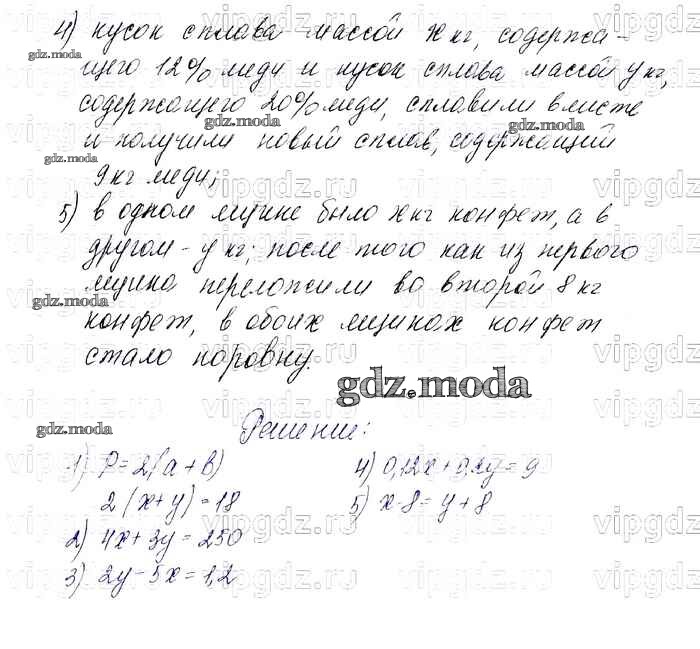 4) кусок сплава массой x кг, содержа-
щего 12% меди и кусок сплава массой y кг,
содержащего 20% меди, сплавили вместе
и получили новый сплав, содержащий
9 кг меди;
5) в одном ящике было x кг конфет, а в
другом - y кг; после того как из первого
ящика переложили во второй 8 кг
конфет, в обоих ящиках конфет
стало поровну.
gdz.moda
Решение:
1) P = 2(a + b)
2(x + y) = 18
2) 4x + 3y = 250
3) 2y - 5x = 1,2
4) 0,12x + 0,2y = 9
5) x - 8 = y + 8